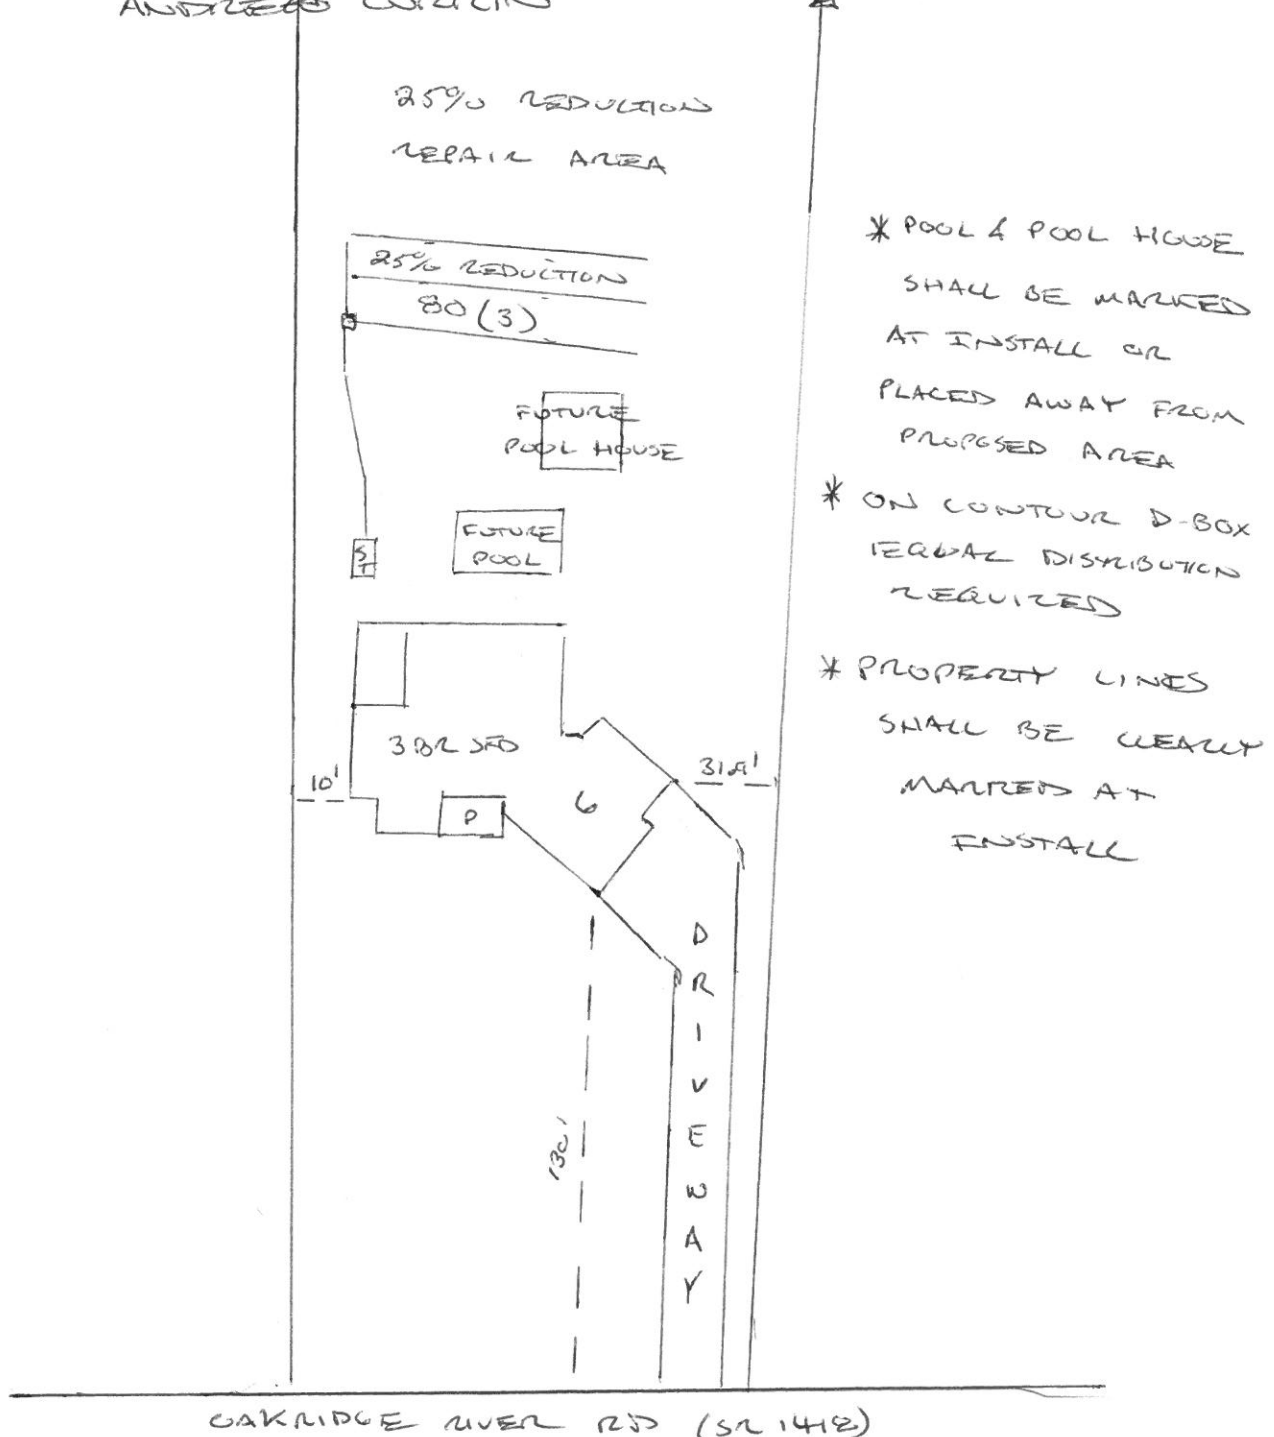 25% REDUCTION
REPAIR AREA
25% REDUCTION
80 (3)
FUTURE
POOL HOUSE
FUTURE
POOL
ST
3 BR SFD
10'
31.9'
P
G
DRIVEWAY
130'
OAKRIDGE RIVER RD (SR 1418)
* POOL & POOL HOUSE
SHALL BE MARKED
AT INSTALL OR
PLACED AWAY FROM
PROPOSED AREA
* ON CONTOUR D-BOX
EQUAL DISTRIBUTION
REQUIRED
* PROPERTY LINES
SHALL BE CLEARLY
MARKED AT
INSTALL